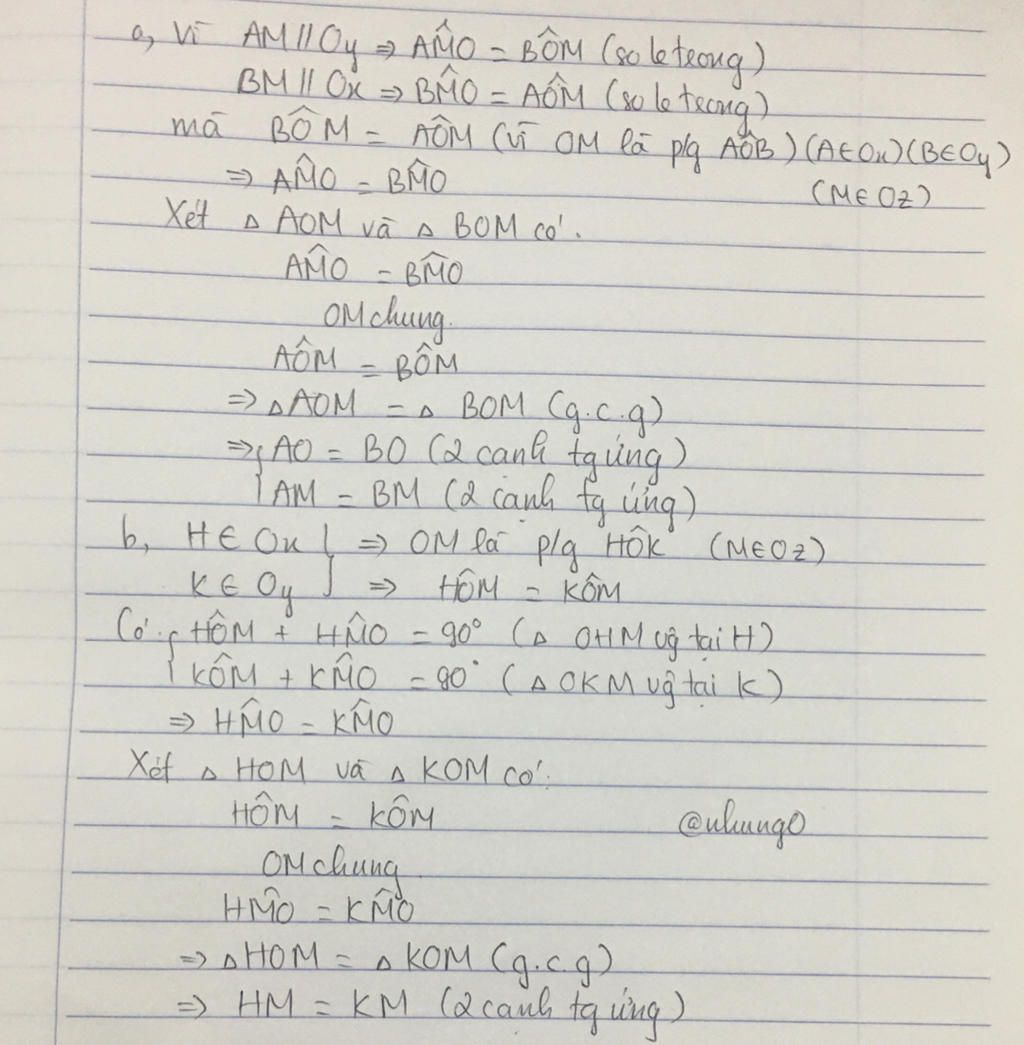 a, Vì AM // Oy => AM̂O = BÔM (so le trong)
BM // Ox => BM̂O = AÔM (so le trong)
mà BÔM = AÔM (vì OM là p/g AÔB) (A∈Ox) (B∈Oy)
=> AM̂O = BM̂O (M∈Oz)
Xét △ AOM và △ BOM có:
AM̂O = BM̂O
OM chung.
AÔM = BÔM
=> △AOM = △ BOM (g.c.g)
=> { AO = BO (2 cạnh tg ứng)
AM = BM (2 cạnh tg ứng)
b, H ∈ Ox } => OM là p/g HÔK (M∈Oz)
K ∈ Oy } => HÔM = KÔM
Có: { HÔM + HM̂O = 90° (△ OHM vg tại H)
KÔM + KM̂O = 90° (△ OKM vg tại K)
=> HM̂O = KM̂O
Xét △ HOM và △ KOM có:
HÔM = KÔM
@nhung0
OM chung
HM̂O = KM̂O
=> △HOM = △ KOM (g.c.g)
=> HM = KM (2 cạnh tg ứng)